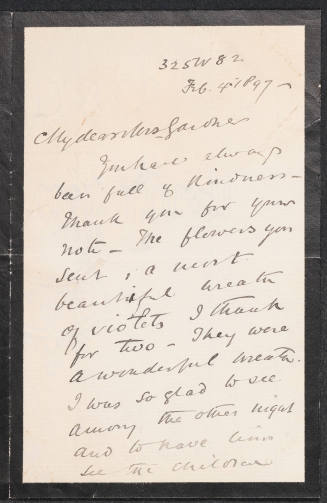 325 W 82
Feb. 4th 1897 -
My dear Mrs Gardner
You have always
been full of Kindness -
Thank you for your
note - The flowers you
sent, a most
beautiful wreath
of violets I thank
for two - They were
a wonderful wreath.
I was so glad to see
the other night
and to have him
see the children